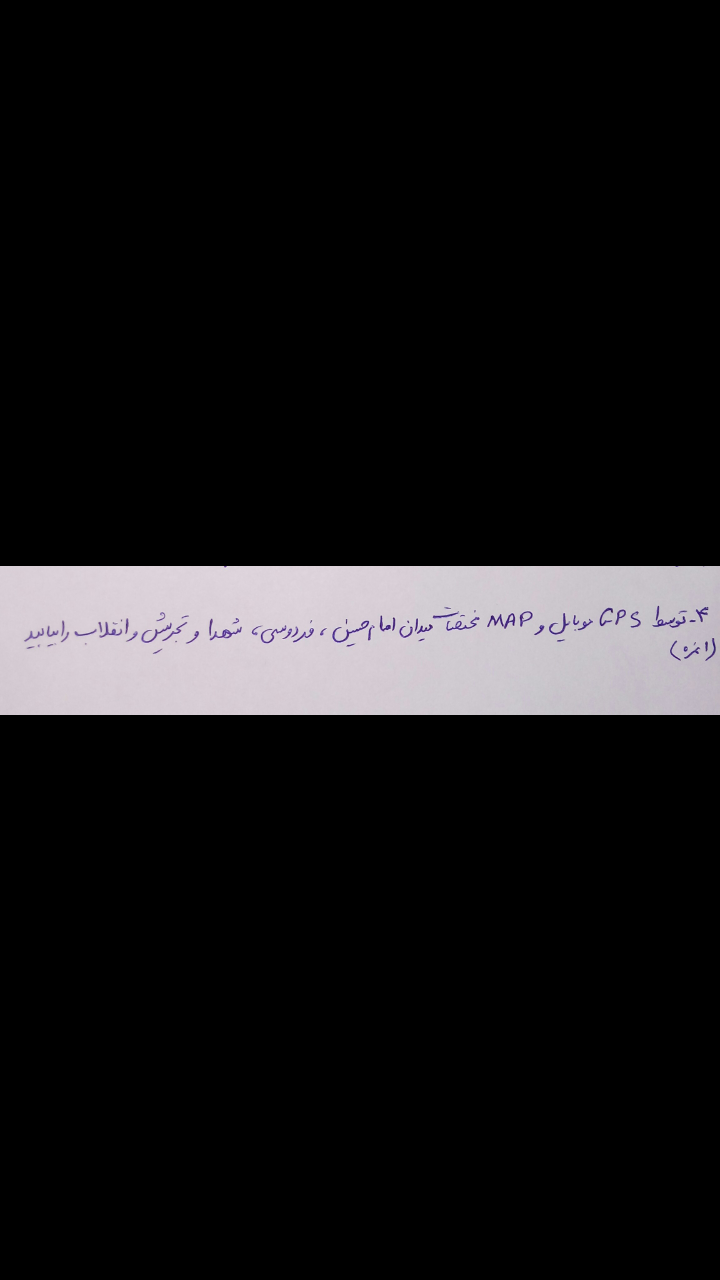 ۴- توسط GPS موبایل و MAP مختصات میدان امام حسین ، فردوسی ، شهدا و تجریش و انقلاب را بیابید
(۱ نمره)